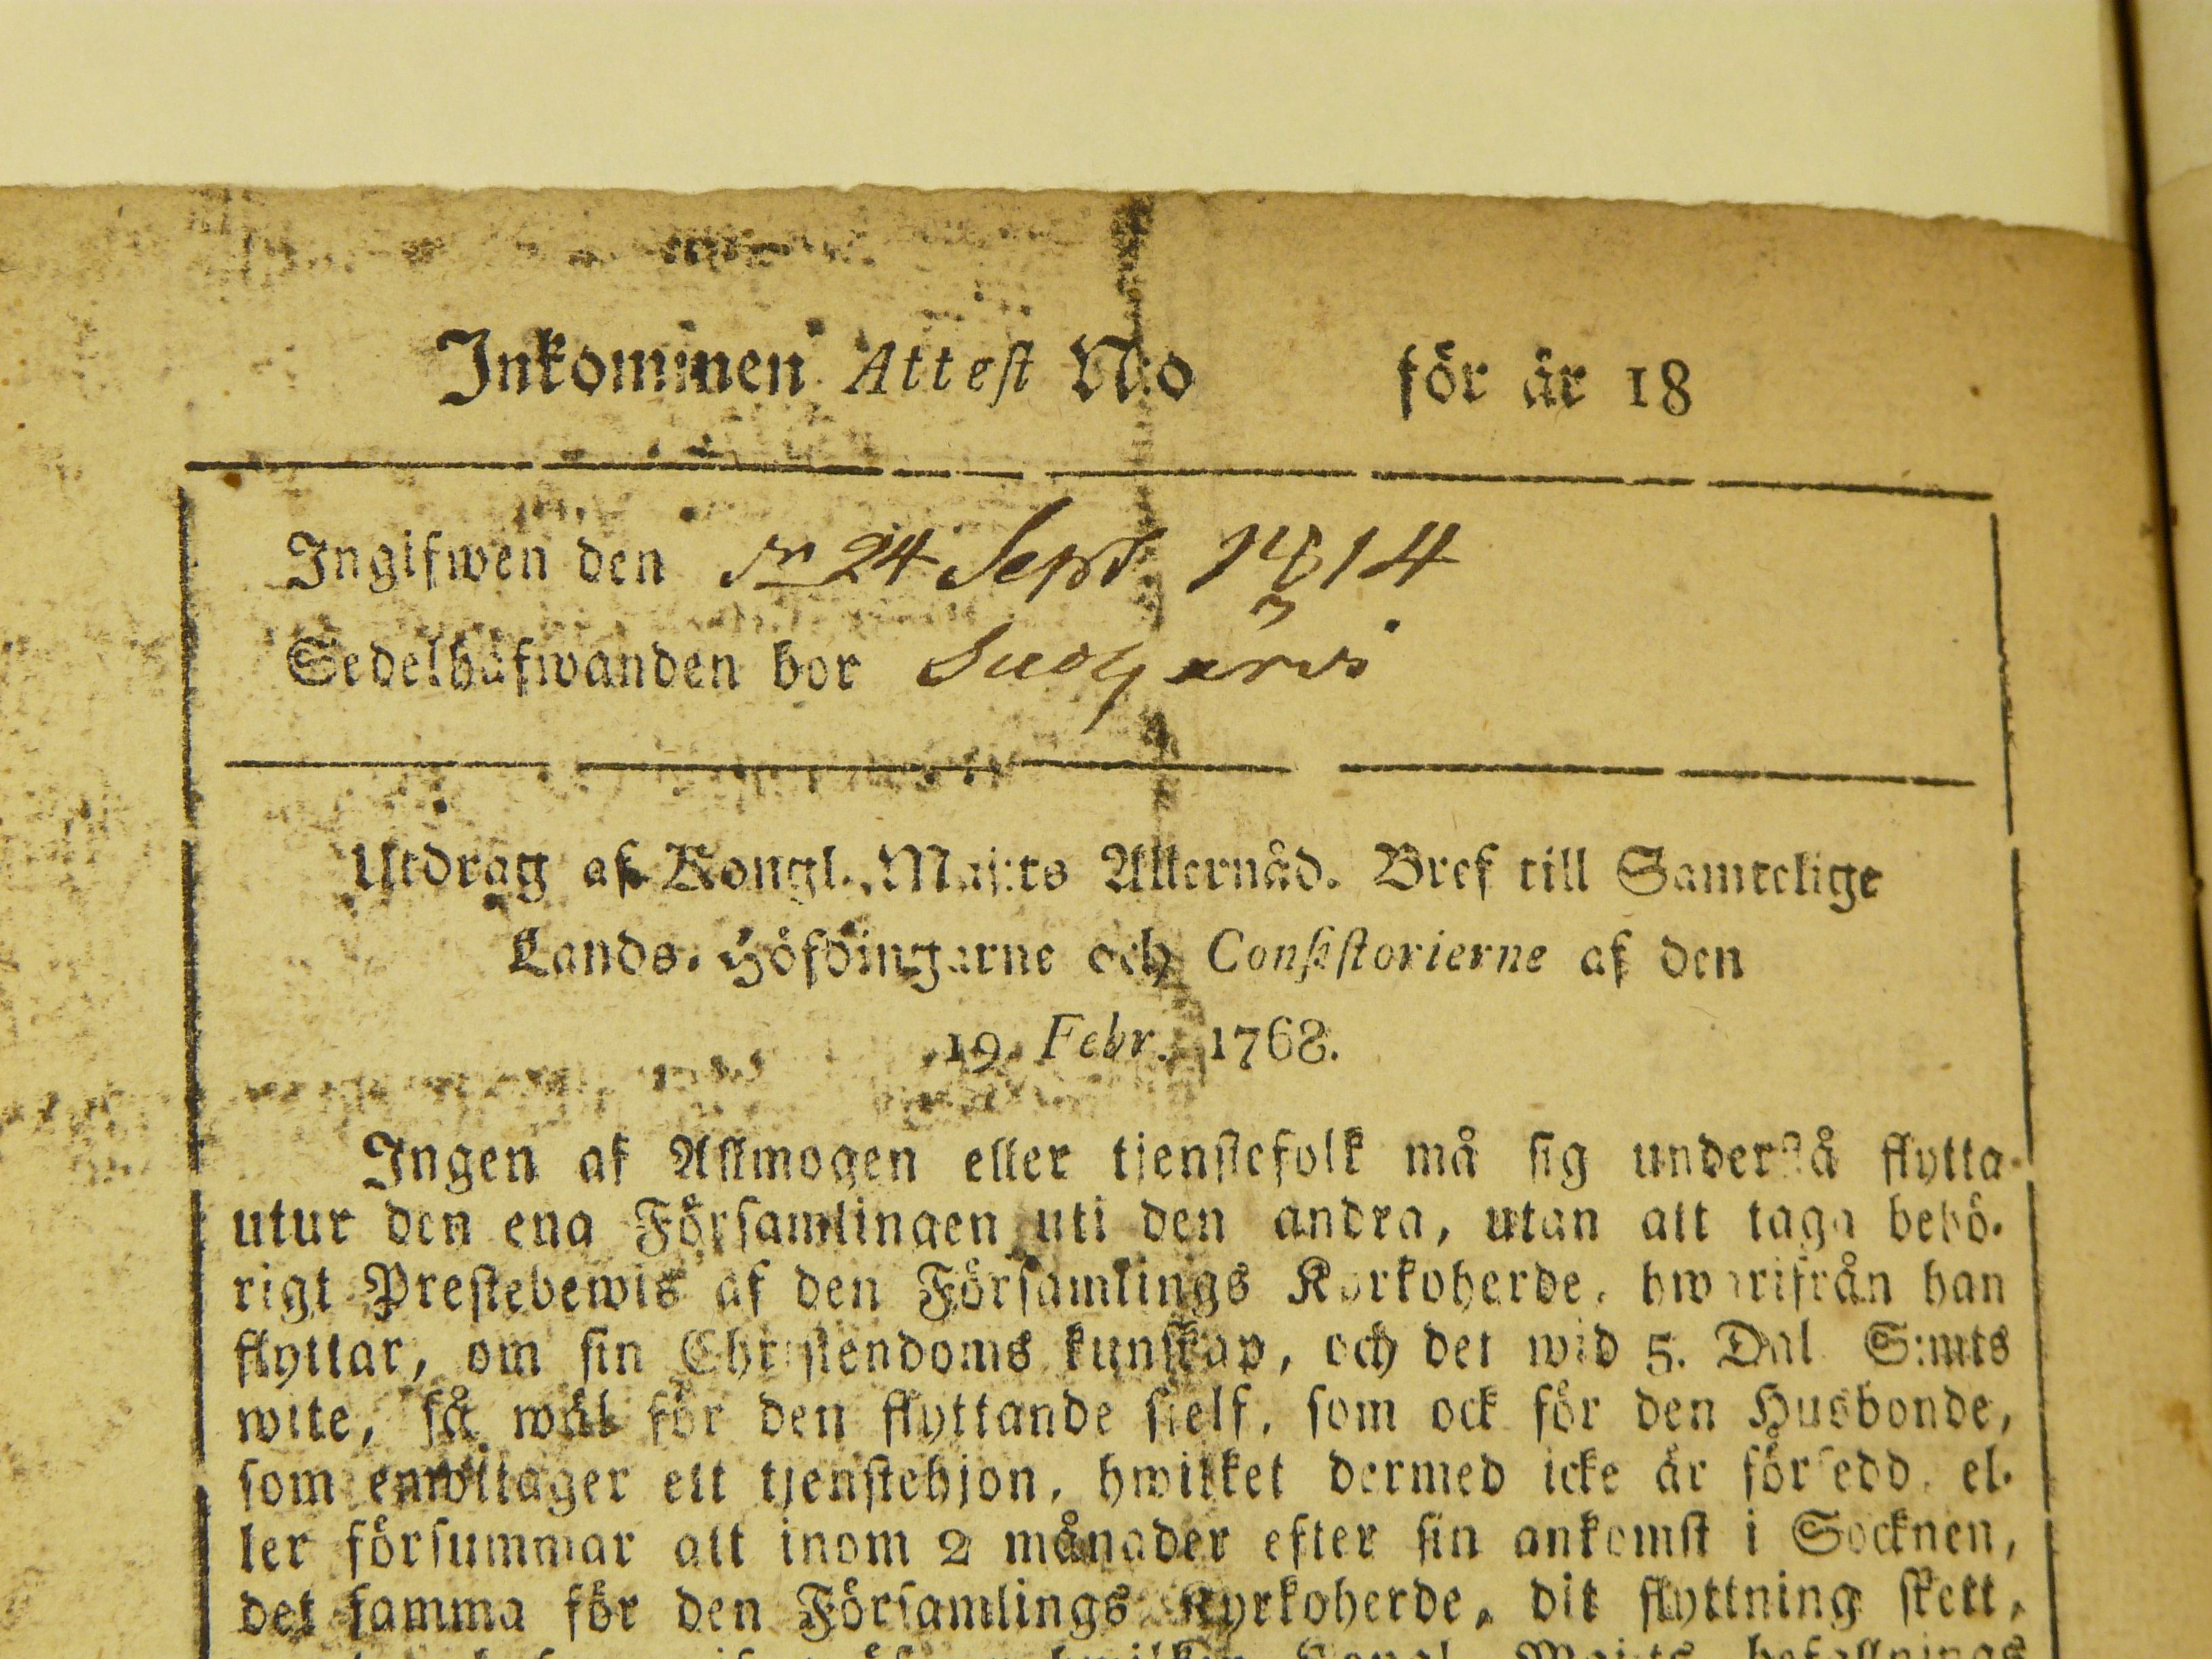 Inkommen Attest N:o för år 18
Ingifwen den 24 Sept 1814
Sedelhafwanden bor
Utdrag af Kongl. Maj:ts Allernåd. Bref till Samtelige
Lands-Höfdingarne och Consistorierne af den
19. Febr. 1768.
Ingen af Allmogen eller tjenstefolk må sig understå flytta
utur den ena Församlingen uti den andra, utan att taga behö-
rigt Prestebewis af den Församlings Kyrkoherde, hwarifrån han
flyttar, om sin Christendoms kunskap, och det wid 5. Dal. S:mts
wite, så wäl för den flyttande sjelf, som ock för den Husbonde,
som emottager ett tjenstehjon, hwilket dermed icke är försedd, el-
ler försummar att inom 2 månader efter sin ankomst i Socknen,
det samma för den Församlings Kyrkoherde, dit flyttning skett,